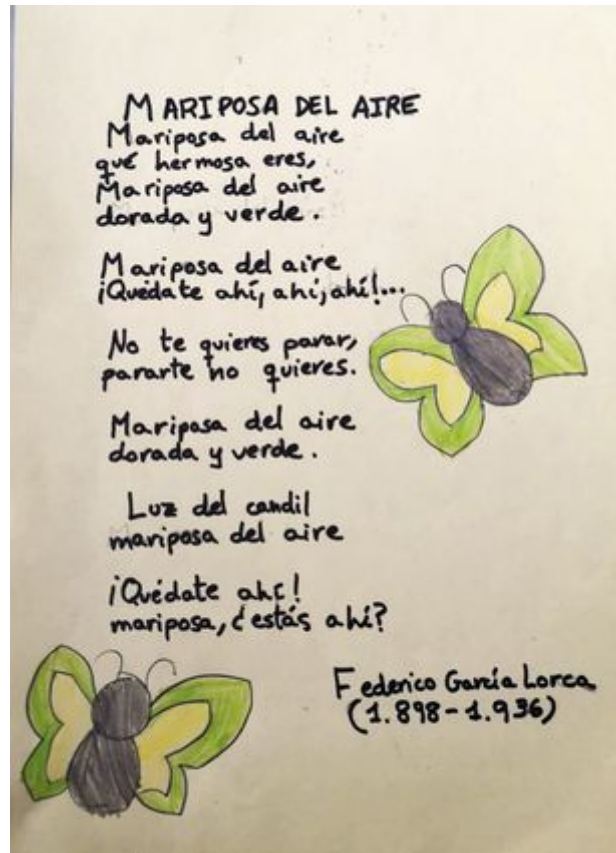 MARIPOSA DEL AIRE
Mariposa del aire
qué hermosa eres,
Mariposa del aire
dorada y verde.
Mariposa del aire
¡Quédate ahí, ahí, ahí!...
No te quieres parar,
pararte no quieres.
Mariposa del aire
dorada y verde.
Luz del candil
mariposa del aire
¡Quédate ahí!
mariposa, ¿estás ahí?
Federico García Lorca
(1.898-1.936)